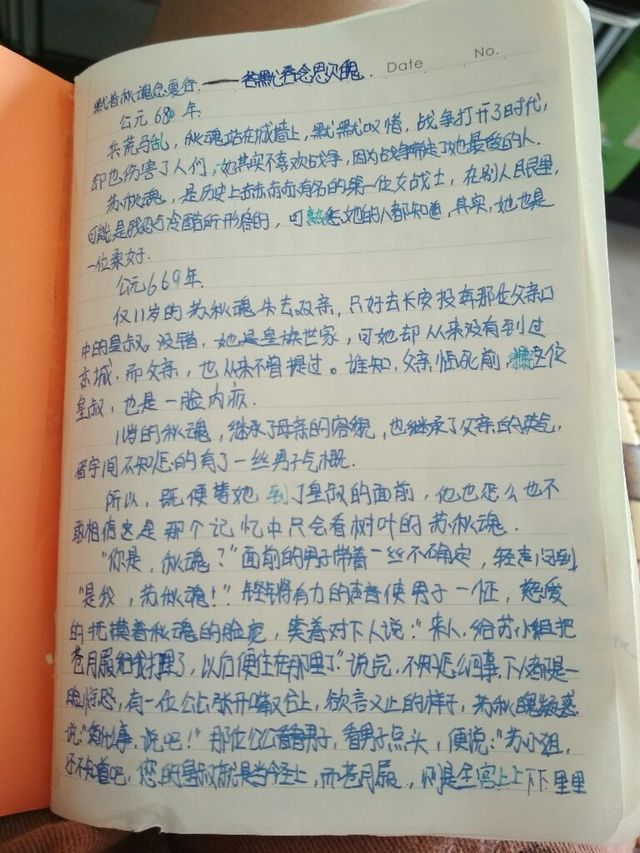 Date No.
默看秋魂忽夏行——苍默吞念忍又魂
公元680年
兵荒马乱，秋魂站在城墙上，默默叹惜，战争打开了时代，
却也伤害了人们，她其实不喜欢战争，因为战争带走了她最爱的人。
苏秋魂，是历史上赫赫有名的第一位女战士，在别人眼里，
可能是残忍与冷酷所形容的，可熟悉她的人都知道，其实，她也是
一位柔女好。
公元669年
仅11岁的苏秋魂失去双亲，只好去长安投奔那位父亲口
中的皇叔。没错，她是皇族世家，可她却从来没有到过
京城，而父亲，也从来不曾提过。谁知，父亲临死前，这位
皇叔，也是一脸内疚。
11岁的秋魂，继承了母亲的容貌，也继承了父亲的英气，
眉宇间不知怎的有了一丝男子气概。
所以，既便替她到了皇叔的面前，他也怎么也不
敢相信这是那个记忆中只会看树叶的苏秋魂。
“你是，秋魂？”面前的男子带着一丝不确定，轻声问到
“是我，苏秋魂！”铿锵有力的声音使男子一怔，慈爱
的抚摸着秋魂的脸宠，笑着对下人说：“来人，给苏小姐把
苍月殿给我打理了，以后便住在那里了”说完，不知怎么回事，下人都是一
脸惊恐，有一位公公张开嘴又合上，欲言又止的样子，苏秋魂疑惑
说：“有什么事，说吧！”那位公公看看男子，看男子点头，便说：“苏小姐，
还不知道吧，您的皇叔就是当今圣上，而苍月殿，则是全宫上上下下里里